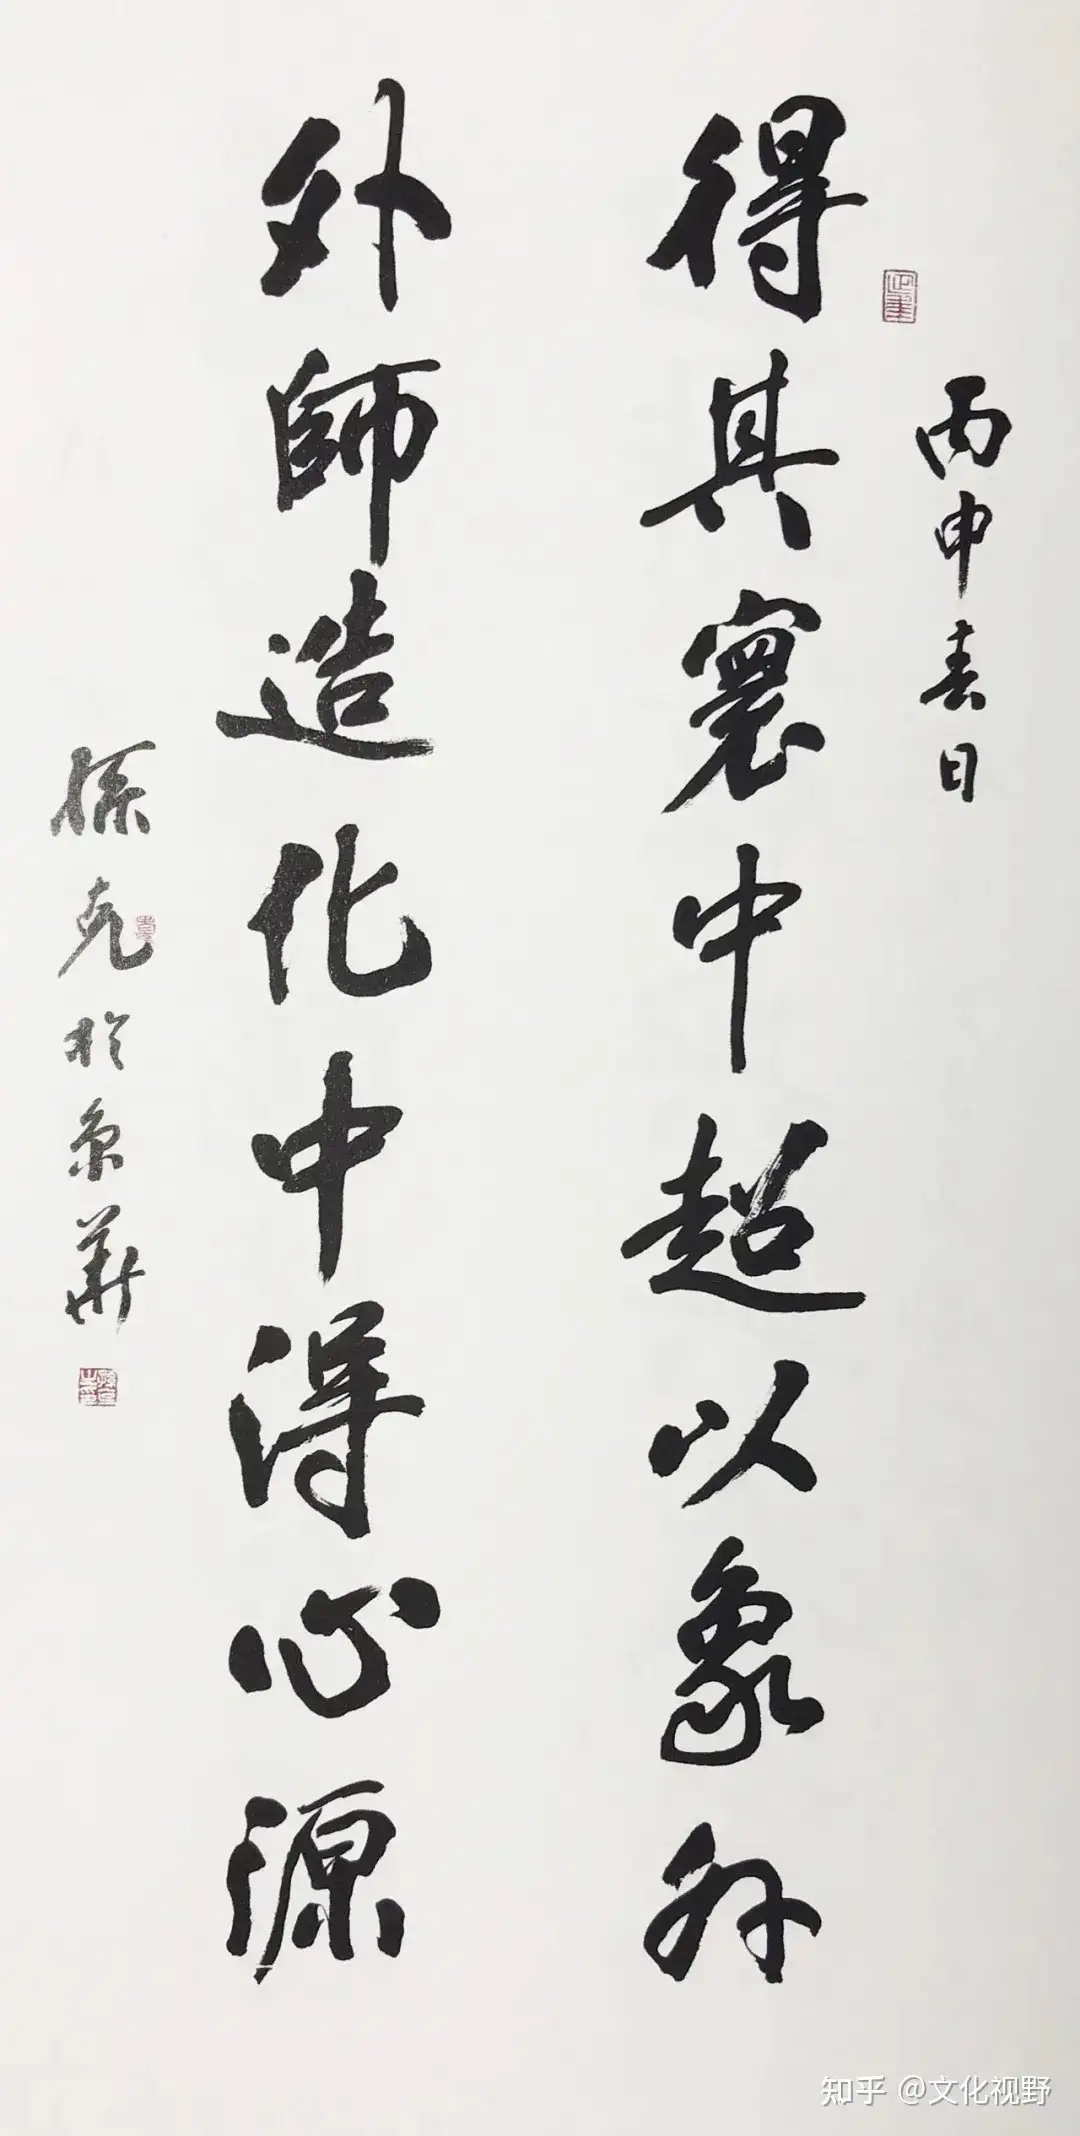 丙申春日
得其寰中超以象外
外師造化中得心源
孫克於京華
知乎 @文化视野